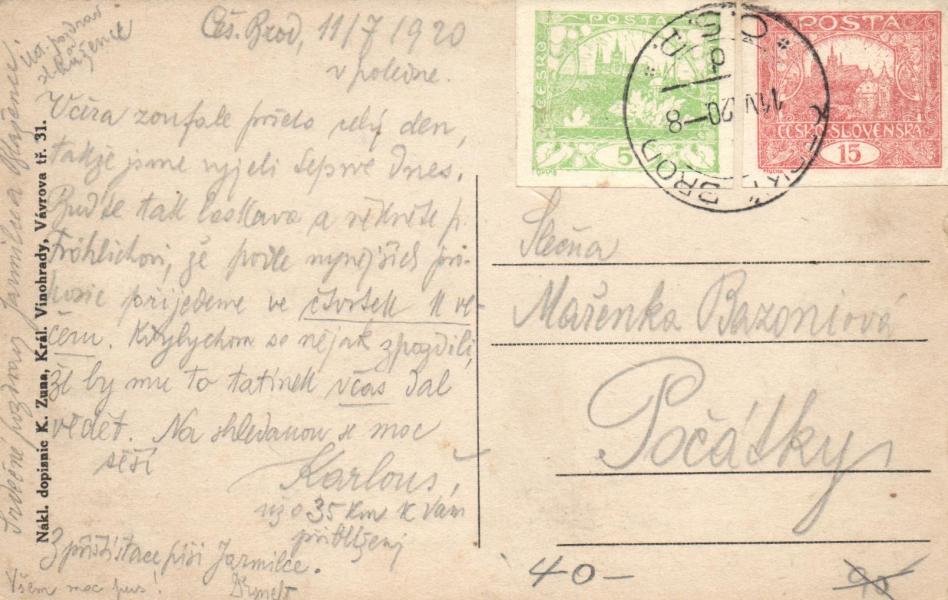 Čes. Brod, 11/7 1920
v poledne.
Včera zoufale pršelo celý den,
takže jsme vyjeli teprve dnes.
Buďte tak laskava a řekněte p.
Fröhlichovi, že podle nynějších
přijedeme ve čtvrtek k ve-
čeru. Kdybychom se nějak zpozdili,
že by mu to tatínek včas dal
vědět. Na shledanou se moc
těší
Karlouš,
už o 35 km k Vám
přiblížený
Z příští stace píši Jarmilce.
Všem moc
Srdečné pozdravy Jarmilce a
Nákl. dopisnic K. Zuna, Král. Vinohrady, Vávrova tř. 31.
POSTA
ČESKO
5
POSTA
ČESKO-SLOVENSKÁ
15
BROD
Slečna
Mařenka Bazoniová
Počátky
40-
90